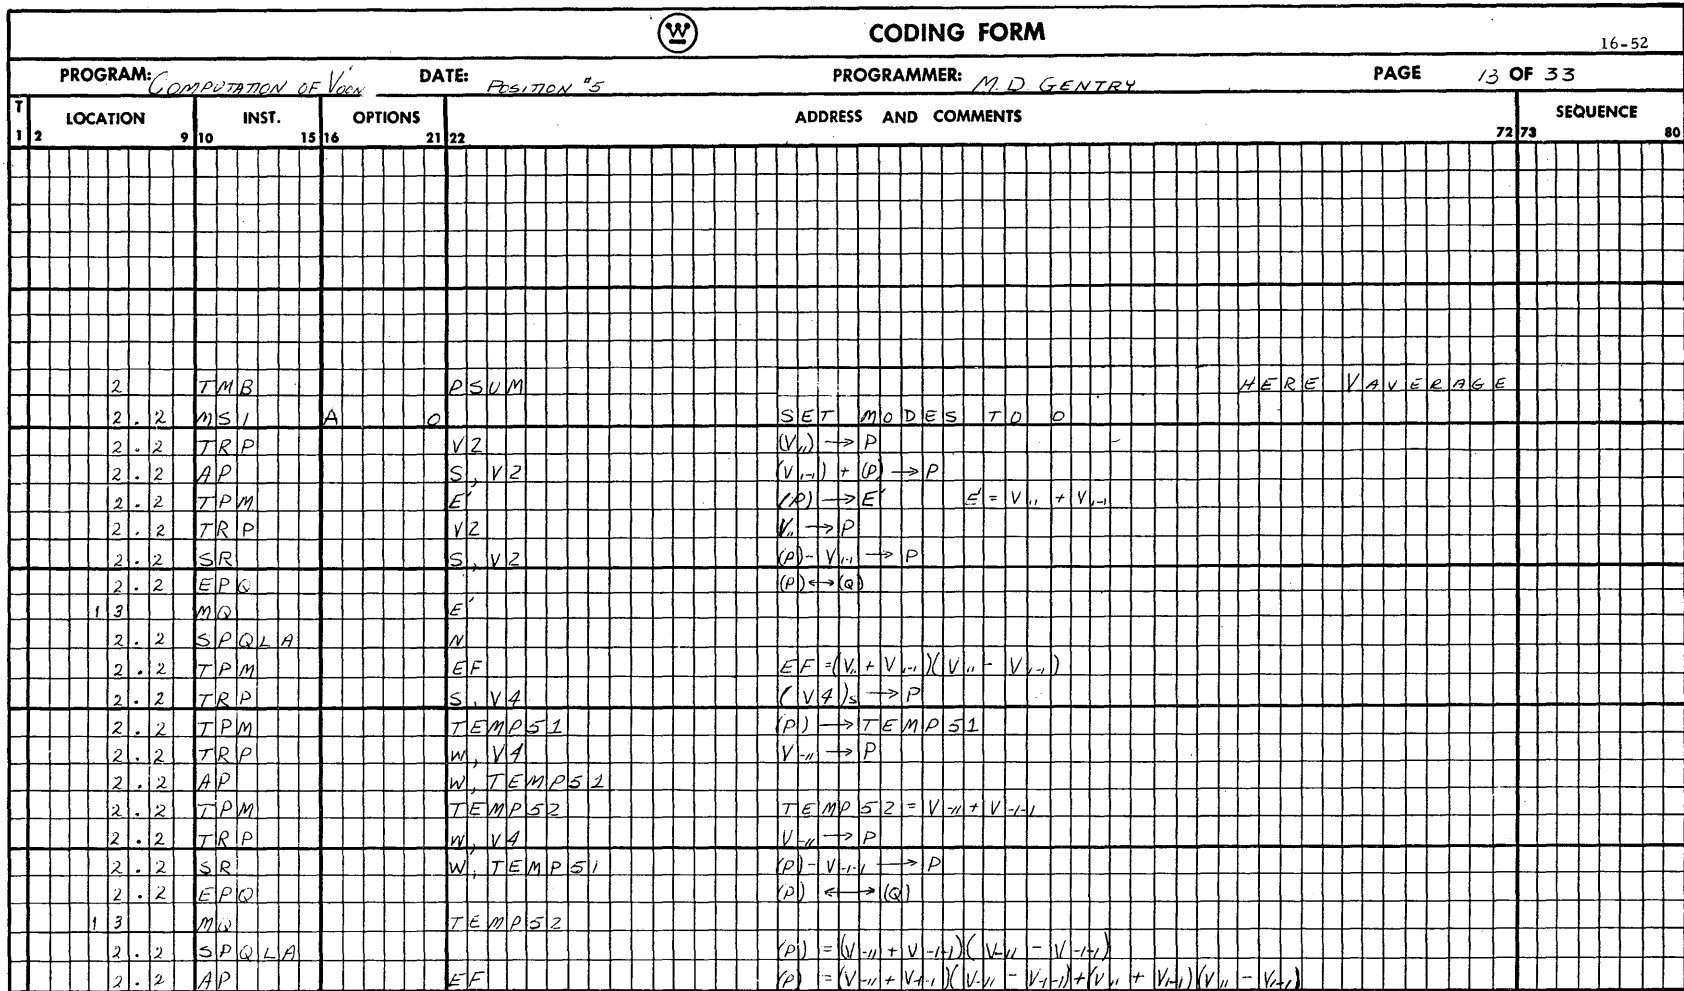 W CODING FORM
16-52
PROGRAM: COMPUTATION OF DATE: POSITION #5 PROGRAMMER: M.D. GENTRY PAGE 13 OF 33
T LOCATION INST. OPTIONS ADDRESS AND COMMENTS SEQUENCE
1 2 9 10 15 16 21 22 72 73 80
2 TMB PSUM HERE VAVERAGE
2.2 MS1 A 0 SET MODES TO 0
2.2 TRP V2 (V,,) → P
2.2 AP S, V2 (V,-1) + (P) → P
2.2 TPM E' (P) → E' E' = V,, + V,-1
2.2 TRP V2 V,, → P
2.2 SR S, V2 (P) - V,-1 → P
2.2 EPQ (P) ↔ (Q)
13 MQ E'
2.2 SPQLA N
2.2 TPM EF EF = (V,, + V,-1)(V,, - V,-1)
2.2 TRP S, V4 (V4)s → P
2.2 TPM TEMP51 (P) → TEMP51
2.2 TRP W, V4 V-11 → P
2.2 AP W, TEMP51
2.2 TPM TEMP52 TEMP52 = V-11 + V-1-1
2.2 TRP W, V4 V-11 → P
2.2 SR W, TEMP51 (P) - V-1-1 → P
2.2 EPQ (P) ↔ (Q)
13 MQ TEMP52
2.2 SPQLA (P) = (V-11 + V-1-1)(V-11 - V-1-1)
2.2 AP EF (P) = (V-11 + V-1-1)(V-11 - V-1-1) + (V,, + V,-1)(V,, - V,-1)